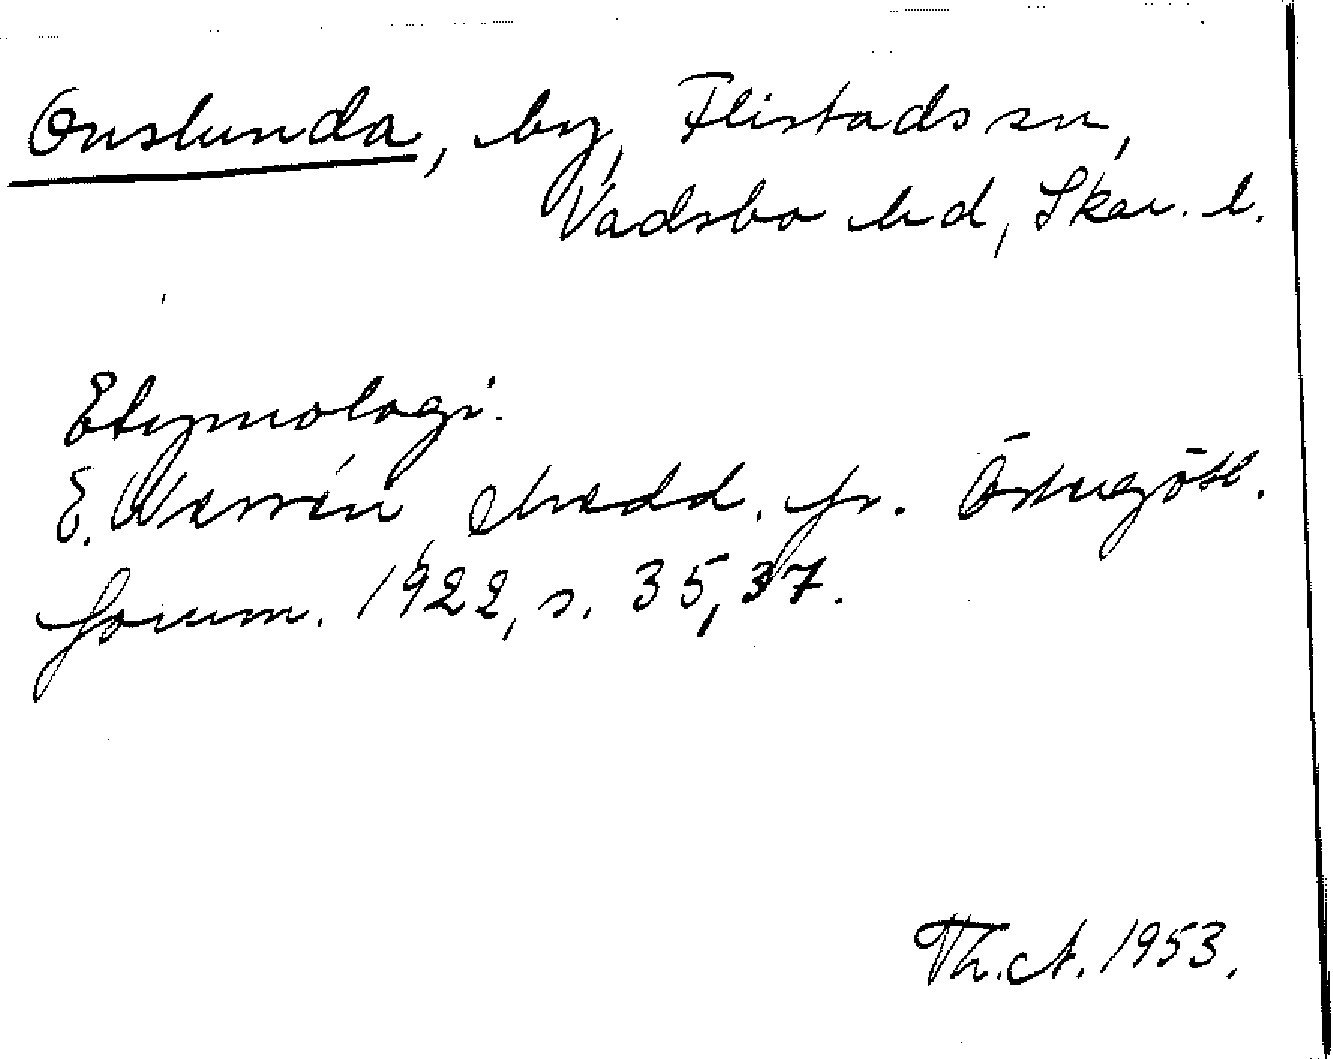 Onslunda, by, Flistads sn,
Vadsbo hd, Skar. l.
Etymologi.
E. Wessén, Medd. fr. Östergötl.
fornm. 1922, s. 35, 37.
Th. A. 1953.